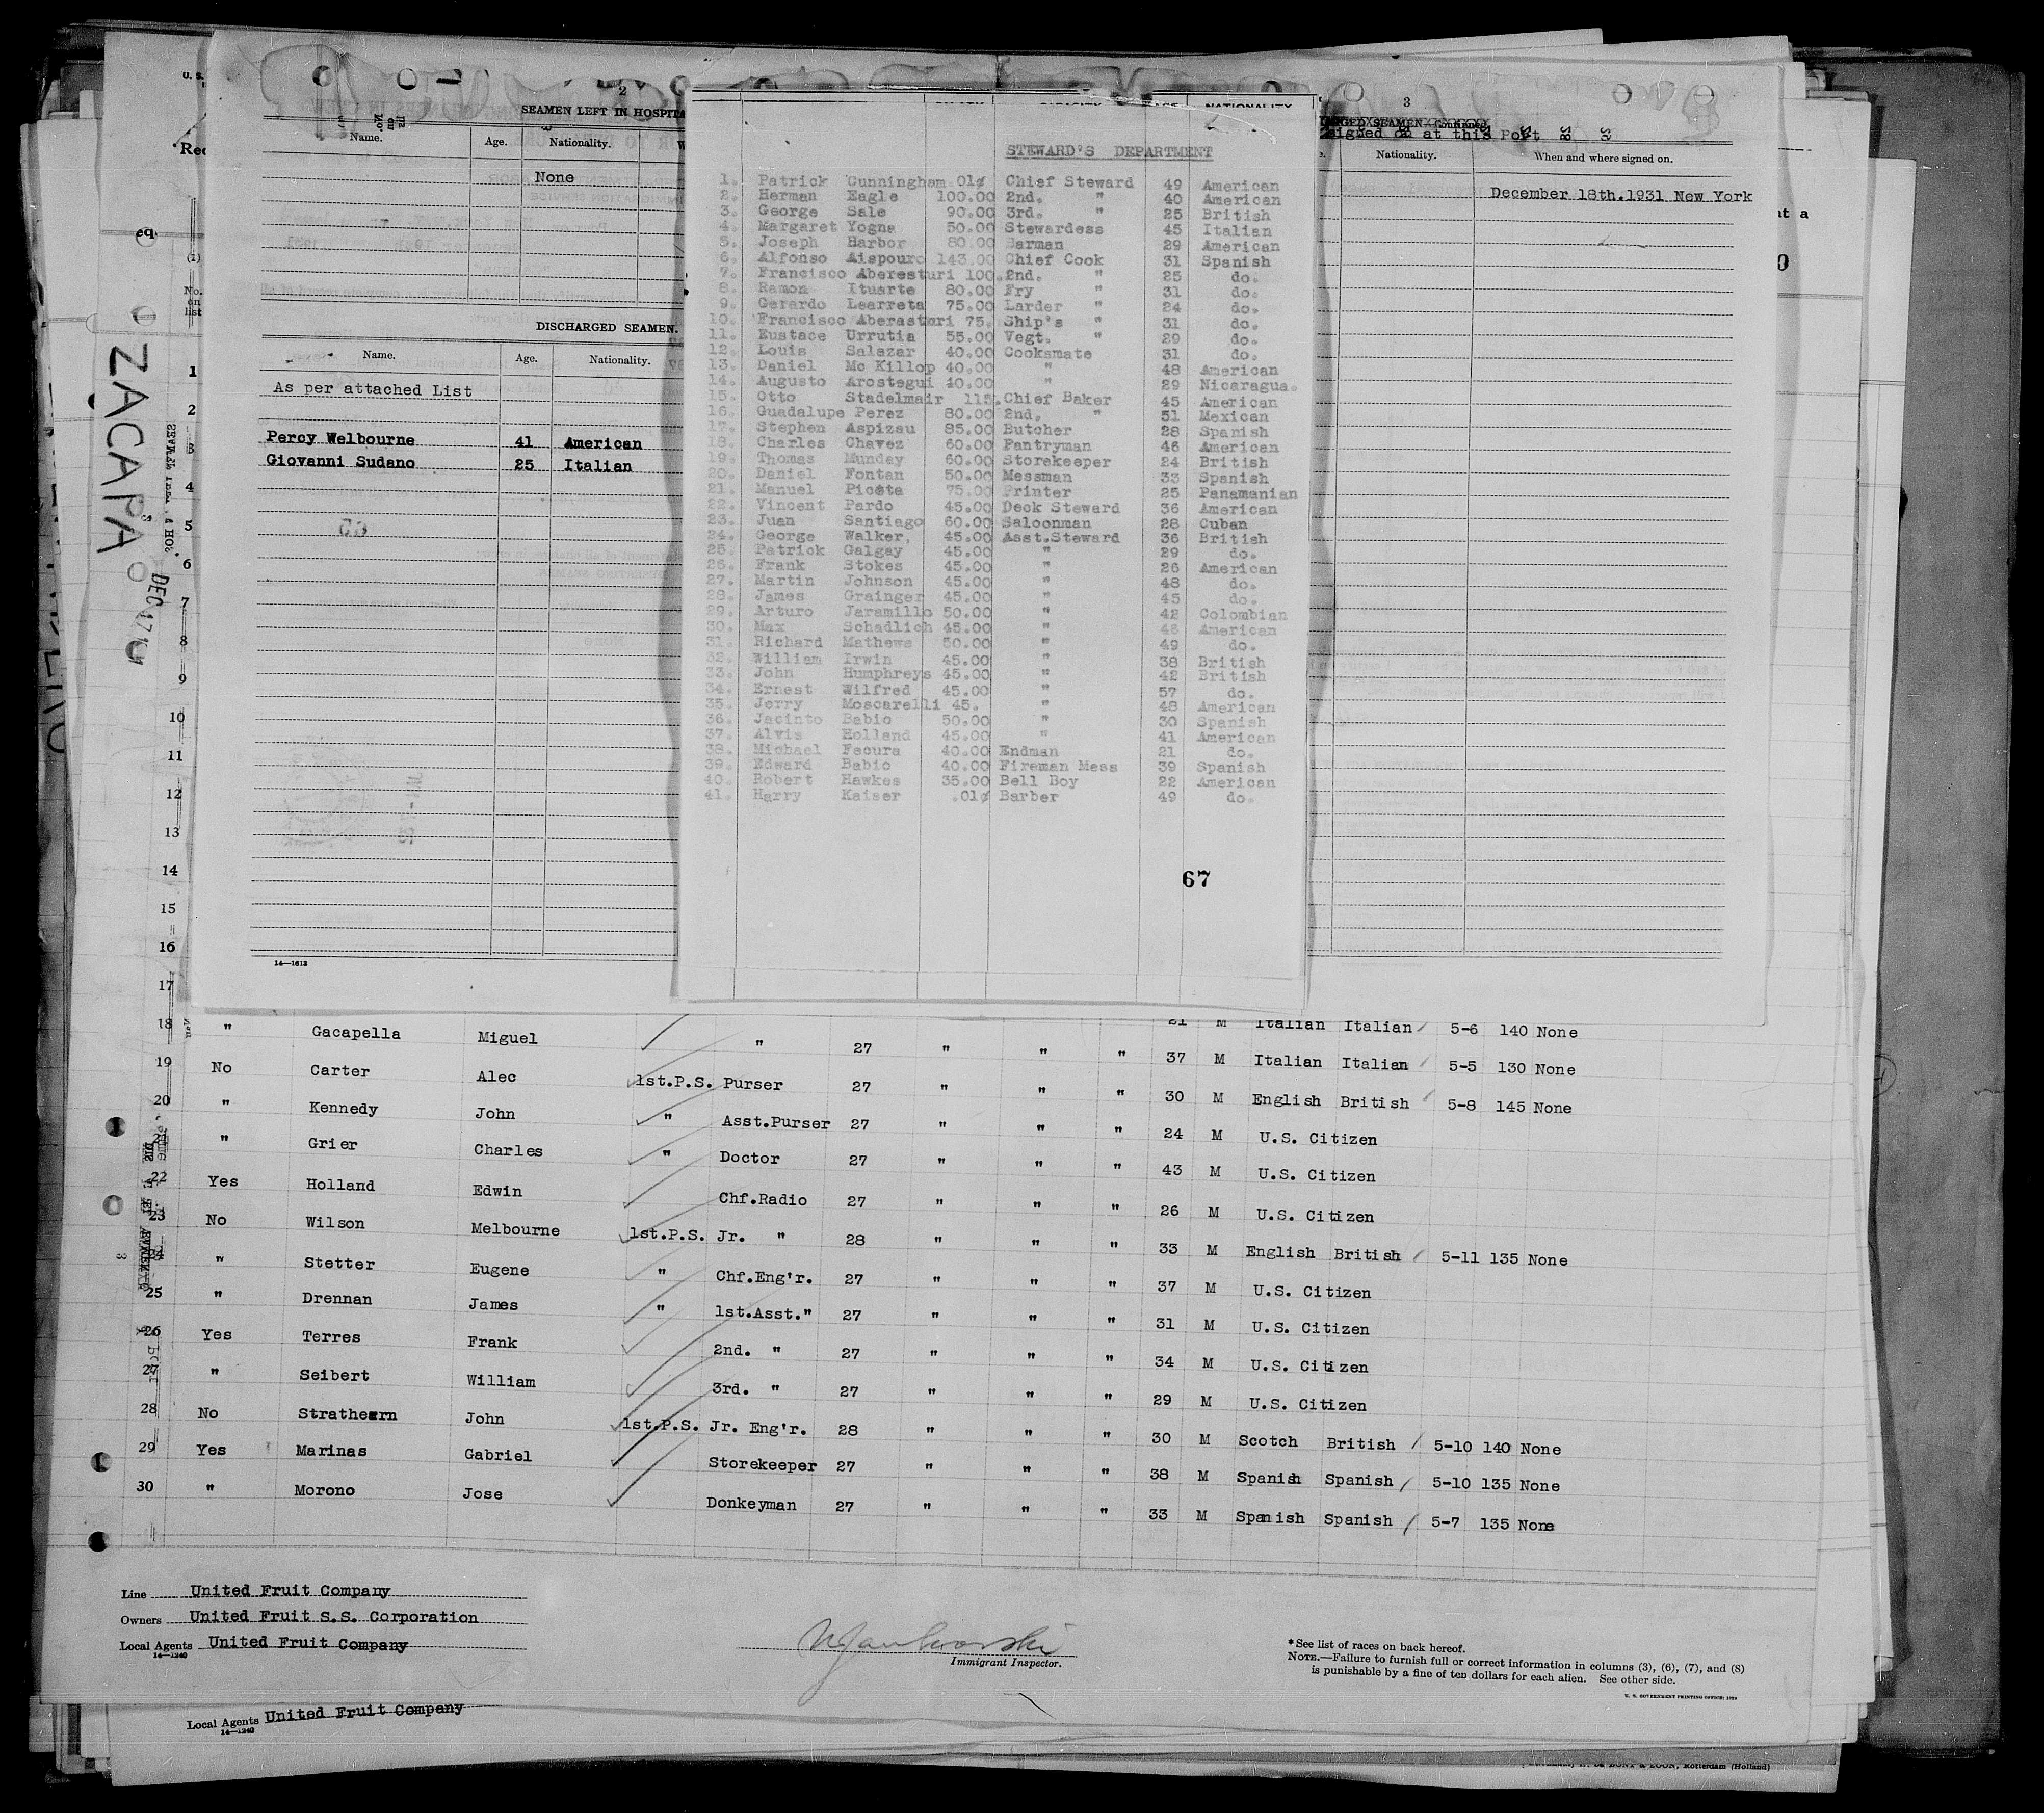 2
SEAMEN LEFT IN HOSPITA
Name. Age. Nationality.
None
DISCHARGED SEAMEN.
Name. Age. Nationality.
As per attached List
Percy Welbourne 41 American
Giovanni Sudano 25 Italian
14—1613
NATIONALITY
STEWARD'S DEPARTMENT
1. Patrick Cunningham .01¢ Chief Steward 49 American
2. Herman Eagle 100.00 2nd. " 40 American
3. George Sale 90.00 3rd. " 25 British
4. Margaret Yogna 50.00 Stewardess 45 Italian
5. Joseph Harbor 80.00 Barman 29 American
6. Alfonso Aispouro 143.00 Chief Cook 31 Spanish
7. Francisco Aberesturi 100. 2nd. " 25 do.
8. Ramon Ituarte 80.00 Fry " 31 do.
9. Gerardo Learreta 75.00 Larder " 24 do.
10. Francisco Aberasturi 75. Ship's " 31 do.
11. Eustace Urrutia 55.00 Vegt. " 29 do.
12. Louis Salazar 40.00 Cooksmate 31 do.
13. Daniel Mc Killop 40.00 " 48 American
14. Augusto Arostegui 40.00 " 29 Nicaragua.
15. Otto Stadelmair 115. Chief Baker 45 American
16. Guadalupe Perez 80.00 2nd. " 51 Mexican
17. Stephen Aspizau 85.00 Butcher 28 Spanish
18. Charles Chavez 60.00 Pantryman 46 American
19. Thomas Munday 60.00 Storekeeper 24 British
20. Daniel Fontan 50.00 Messman 33 Spanish
21. Manuel Picota 75.00 Printer 25 Panamanian
22. Vincent Pardo 45.00 Deck Steward 36 American
23. Juan Santiago 60.00 Saloonman 28 Cuban
24. George Walker, 45.00 Asst.Steward 36 British
25. Patrick Galgay 45.00 " 29 do.
26. Frank Stokes 45.00 " 26 American
27. Martin Johnson 45.00 " 48 do.
28. James Grainger 45.00 " 45 do.
29. Arturo Jaramillo 50.00 " 42 Colombian
30. Max Schadlich 45.00 " 46 American
31. Richard Mathews 50.00 " 49 do.
32. William Irwin 45.00 " 38 British
33. John Humphreys 45.00 " 42 British
34. Ernest Wilfred 45.00 " 57 do.
35. Jerry Moscarelli 45. " 48 American
36. Jacinto Babio 50.00 " 30 Spanish
37. Alvis Holland 45.00 " 41 American
38. Michael Facura 40.00 Endman 21 do.
39. Edward Babio 40.00 Fireman Mess 39 Spanish
40. Robert Hawkes 35.00 Bell Boy 22 American
41. Harry Kaiser .01¢ Barber 49 do.
67
3
signed on at this Port
Nationality. When and where signed on.
December 18th.1931 New York
U. S.
ZACAPA
DEC 17
No. on list
1
2
3
4
5
6
7
8
9
10
11
12
13
14
15
16
17
18 " Gacapella Miguel " 27 " " " 21 M Italian Italian 5-6 140 None
19 No Carter Alec 1st.P.S. Purser 27 " " " 37 M Italian Italian 5-5 130 None
20 " Kennedy John " Asst.Purser 27 " " " 30 M English British 5-8 145 None
21 " Grier Charles " Doctor 27 " " " 24 M U.S. Citizen
22 Yes Holland Edwin Chf.Radio 27 " " " 43 M U.S. Citizen
23 No Wilson Melbourne 1st.P.S. Jr. " 28 " " " 26 M U.S. Citizen
24 " Stetter Eugene " Chf.Eng'r. 27 " " " 33 M English British 5-11 135 None
25 " Drennan James " 1st.Asst." 27 " " " 37 M U.S. Citizen
26 Yes Terres Frank 2nd. " 27 " " " 31 M U.S. Citizen
27 " Seibert William 3rd. " 27 " " " 34 M U.S. Citizen
28 No Strathearn John 1st.P.S. Jr. Eng'r. 28 " " " 29 M U.S. Citizen
29 Yes Marinas Gabriel Storekeeper 27 " " " 30 M Scotch British 5-10 140 None
30 " Morono Jose Donkeyman 27 " " " 38 M Spanish Spanish 5-10 135 None
33 M Spanish Spanish 5-7 135 None
Line United Fruit Company
Owners United Fruit S.S. Corporation
Local Agents United Fruit Company
14—1240
Immigrant Inspector.
*See list of races on back hereof.
NOTE.—Failure to furnish full or correct information in columns (3), (6), (7), and (8)
is punishable by a fine of ten dollars for each alien. See other side.
U. S. GOVERNMENT PRINTING OFFICE: 1929
Local Agents United Fruit Company
14—1240
Rotterdam (Holland)